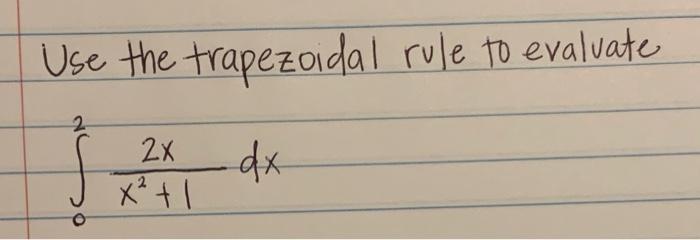 Use the trapezoidal rule to evaluate
2
∫ 2x / x² + 1 dx
0